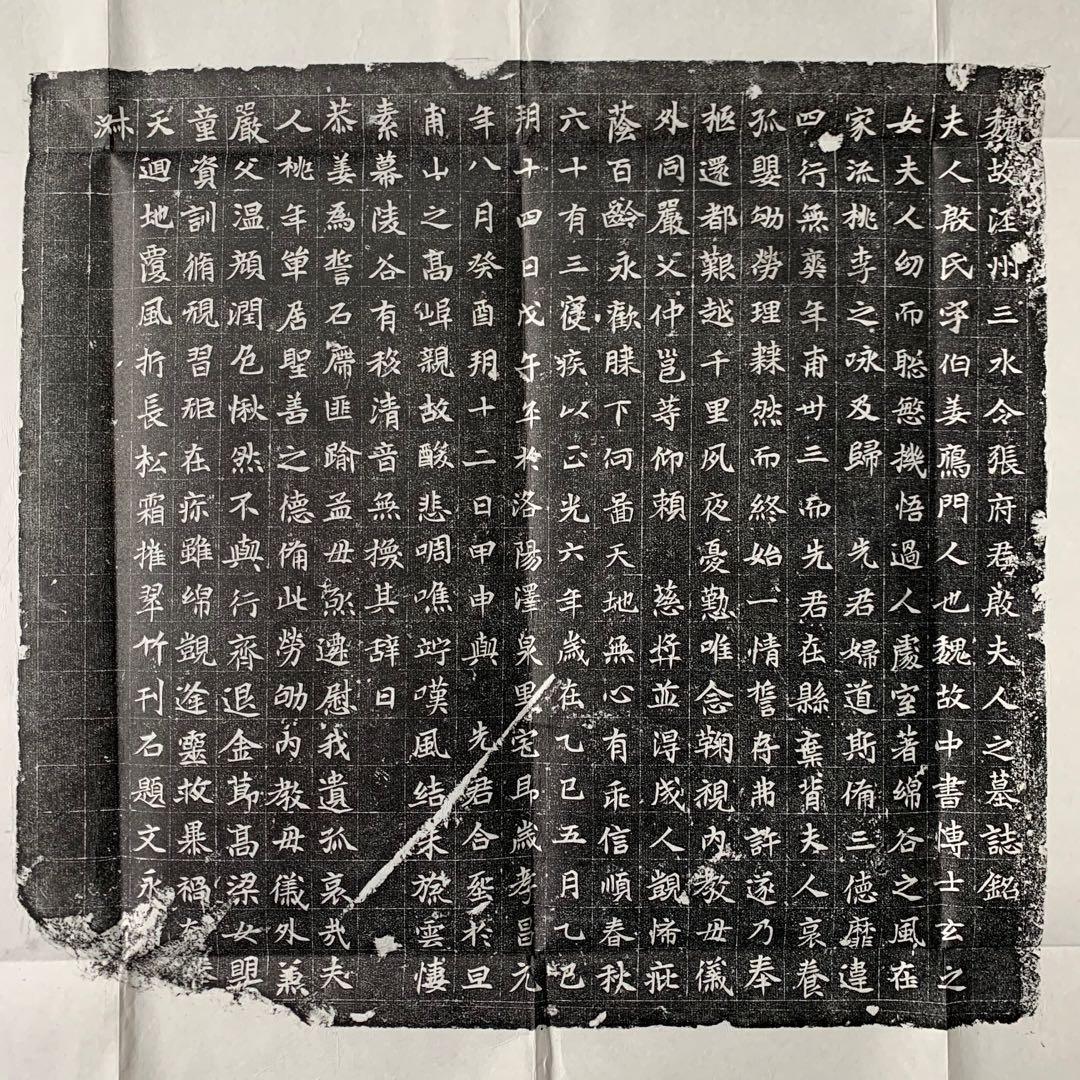 魏故涇州三水令張府君殷夫人之墓誌銘
夫人殷氏字伯姜鴈門人也魏故中書博士玄之
女夫人幼而聡慜機悟過人處室著綿谷之風在
家流桃李之咏及歸 先君婦道斯俻三德靡違
四行無爽年甫卅三而先君在縣棄背夫人哀養
孤嬰劬勞理棘然而終始一情誓存弗許遂乃奉
柩還都艱越千里夙夜憂懃唯念鞠視內教毋儀
外同嚴父仲邕等仰賴 慈奬並淂成人覬怖疵
蔭百齡永歡膝下何啚天地無心有乖信順春秋
六十有三寑疾以正光六年歲在乙巳五月乙巳
朔十四日戊午卒於洛陽澤泉里宅即歲孝昌元
年八月癸酉朔十二日甲申與 先君合塟於旦
甫山之髙埠親故酸悲啁噍竚嘆風結 旅雲悽
素幕陵谷有移清音無換其辞曰
恭姜為誓石席匪踰孟毋 遷慰我遺孤哀㢤夫
人桃年單居聖善之德俻此勞劬內教毋儀外兼
嚴父温顔潤色愀然不與行齊退金莭髙梁女嬰
童資訓脩規習矩在疢雖綿覬逢靈枚暴禍
天迴地覆風折長松霜摧翠竹刊石題文永
沐